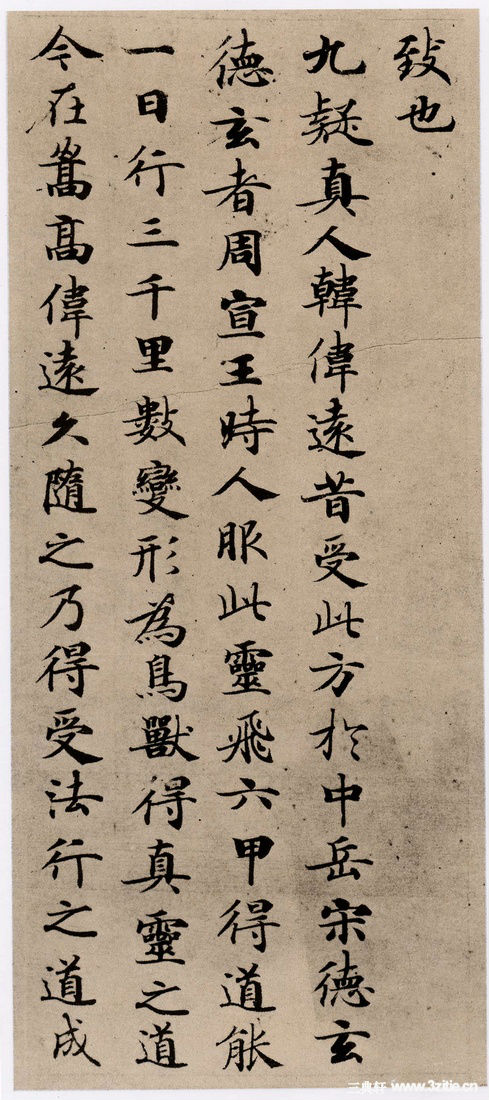 致也
九疑真人韓偉遠昔受此方於中岳宋德玄
德玄者周宣王時人服此靈飛六甲得道能
一日行三千里數變形為鳥獸得真靈之道
今在嵩高偉遠久隨之乃得受法行之道成
三典轩 www.3zitie.cn